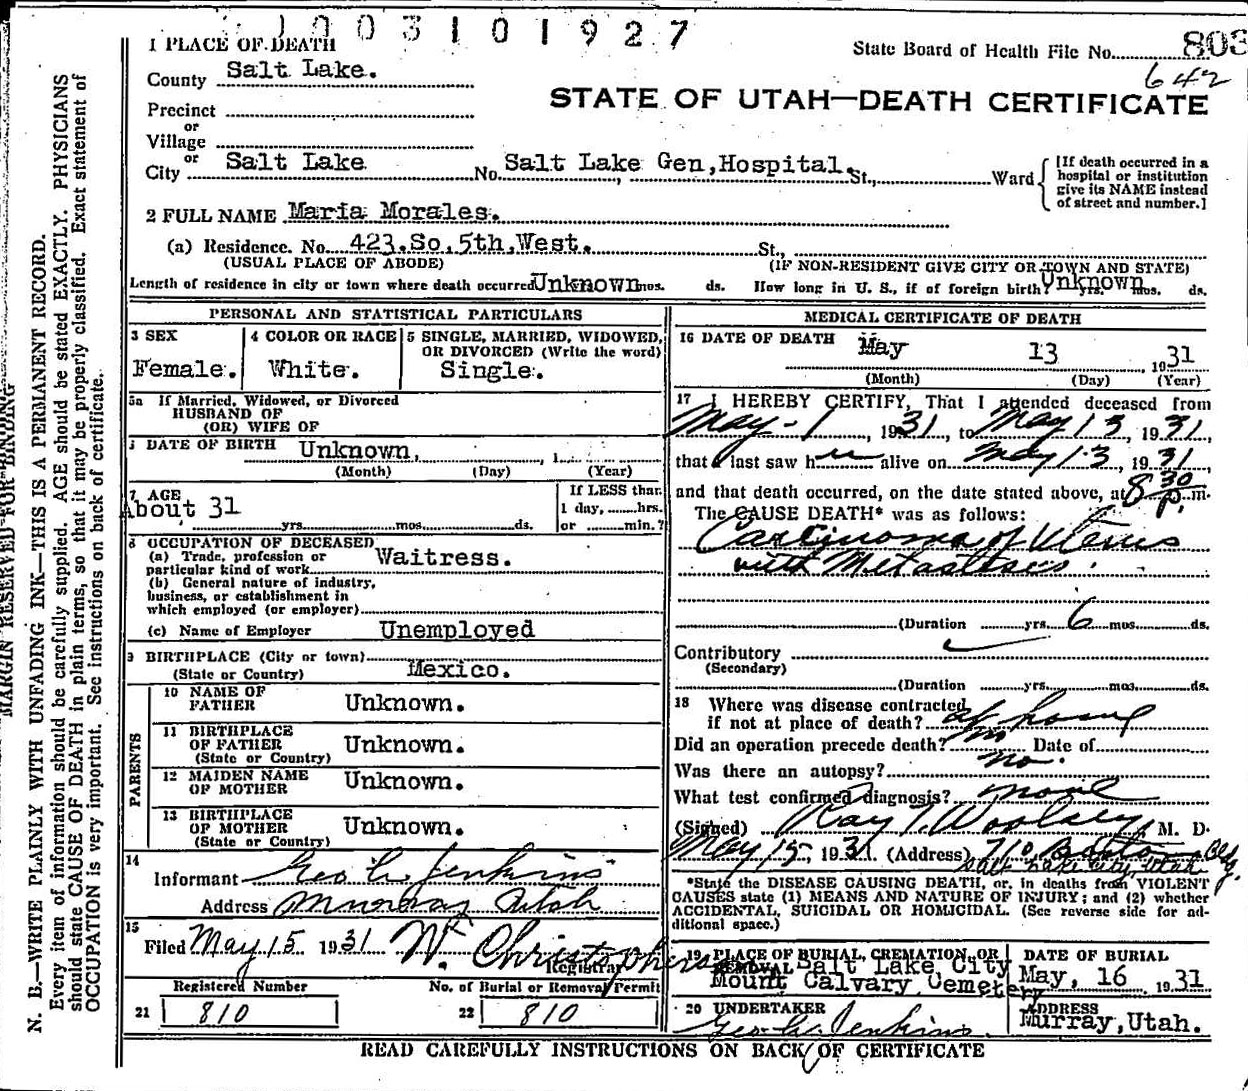 1003101927
1 PLACE OF DEATH
State Board of Health File No. 803
642
County Salt Lake.
STATE OF UTAH—DEATH CERTIFICATE
Precinct
or
Village
or
City Salt Lake No. Salt Lake Gen, Hospital. St., Ward
[If death occurred in a
hospital or institution
give its NAME instead
of street and number.]
2 FULL NAME Maria Morales.
(a) Residence. No. 423. So. 5th. West. St.,
(USUAL PLACE OF ABODE) (IF NON-RESIDENT GIVE CITY OR TOWN AND STATE)
Length of residence in city or town where death occurred Unknown mos. ds. How long in U. S., if of foreign birth? Unknown yrs. mos. ds.
PERSONAL AND STATISTICAL PARTICULARS
3 SEX
Female.
4 COLOR OR RACE
White.
5 SINGLE, MARRIED, WIDOWED,
OR DIVORCED (Write the word)
Single.
5a If Married, Widowed, or Divorced
HUSBAND OF
(OR) WIFE OF
DATE OF BIRTH Unknown, 1
(Month) (Day) (Year)
7 AGE
About 31
yrs. mos. ds.
If LESS than
1 day, hrs.
or min.?
8 OCCUPATION OF DECEASED
(a) Trade, profession or
particular kind of work Waitress.
(b) General nature of industry,
business, or establishment in
which employed (or employer)
(c) Name of Employer Unemployed
9 BIRTHPLACE (City or town)
(State or Country) Mexico.
PARENTS
10 NAME OF
FATHER Unknown.
11 BIRTHPLACE
OF FATHER Unknown.
(State or Country)
12 MAIDEN NAME
OF MOTHER Unknown.
13 BIRTHPLACE
OF MOTHER Unknown.
(State or Country)
14
Informant Geo L. Jenkins
Address Murray Utah
15
Filed May 15 1931 W. Christopherson
Registrar
Registered Number No. of Burial or Removal Permit
21 810 22 810
MEDICAL CERTIFICATE OF DEATH
16 DATE OF DEATH May 13 1931
(Month) (Day) (Year)
17 I HEREBY CERTIFY, That I attended deceased from
May - 1, 1931, to May 13, 1931,
that I last saw h alive on May 13, 1931
and that death occurred, on the date stated above, at 8 30 p. m.
The CAUSE DEATH* was as follows:
Carcinoma of Uterus
with Metastases.
(Duration yrs. 6 mos. ds.
Contributory
(Secondary)
(Duration yrs. mos. ds.
18 Where was disease contracted
if not at place of death? at home
Did an operation precede death? no Date of
Was there an autopsy? no.
What test confirmed diagnosis? none
(Signed) Ray T. Woolsey, M. D.
May 15, 1931. (Address) 710 Boston Bldg.
Salt Lake City, Utah
*State the DISEASE CAUSING DEATH, or, in deaths from VIOLENT
CAUSES state (1) MEANS AND NATURE OF INJURY; and (2) whether
ACCIDENTAL, SUICIDAL OR HOMICIDAL. (See reverse side for ad-
ditional space.)
19 PLACE OF BURIAL, CREMATION, OR
REMOVAL Salt Lake City
Mount Calvary Cemetery
DATE OF BURIAL
May, 16 1931
20 UNDERTAKER
Geo. L. Jenkins.
ADDRESS
Murray, Utah.
READ CAREFULLY INSTRUCTIONS ON BACK OF CERTIFICATE
MARGIN RESERVED FOR BINDING
N. B.—WRITE PLAINLY WITH UNFADING INK—THIS IS A PERMANENT RECORD.
Every item of information should be carefully supplied. AGE should be stated EXACTLY. PHYSICIANS
should state CAUSE OF DEATH in plain terms, so that it may be properly classified. Exact statement of
OCCUPATION is very important. See instructions on back of certificate.